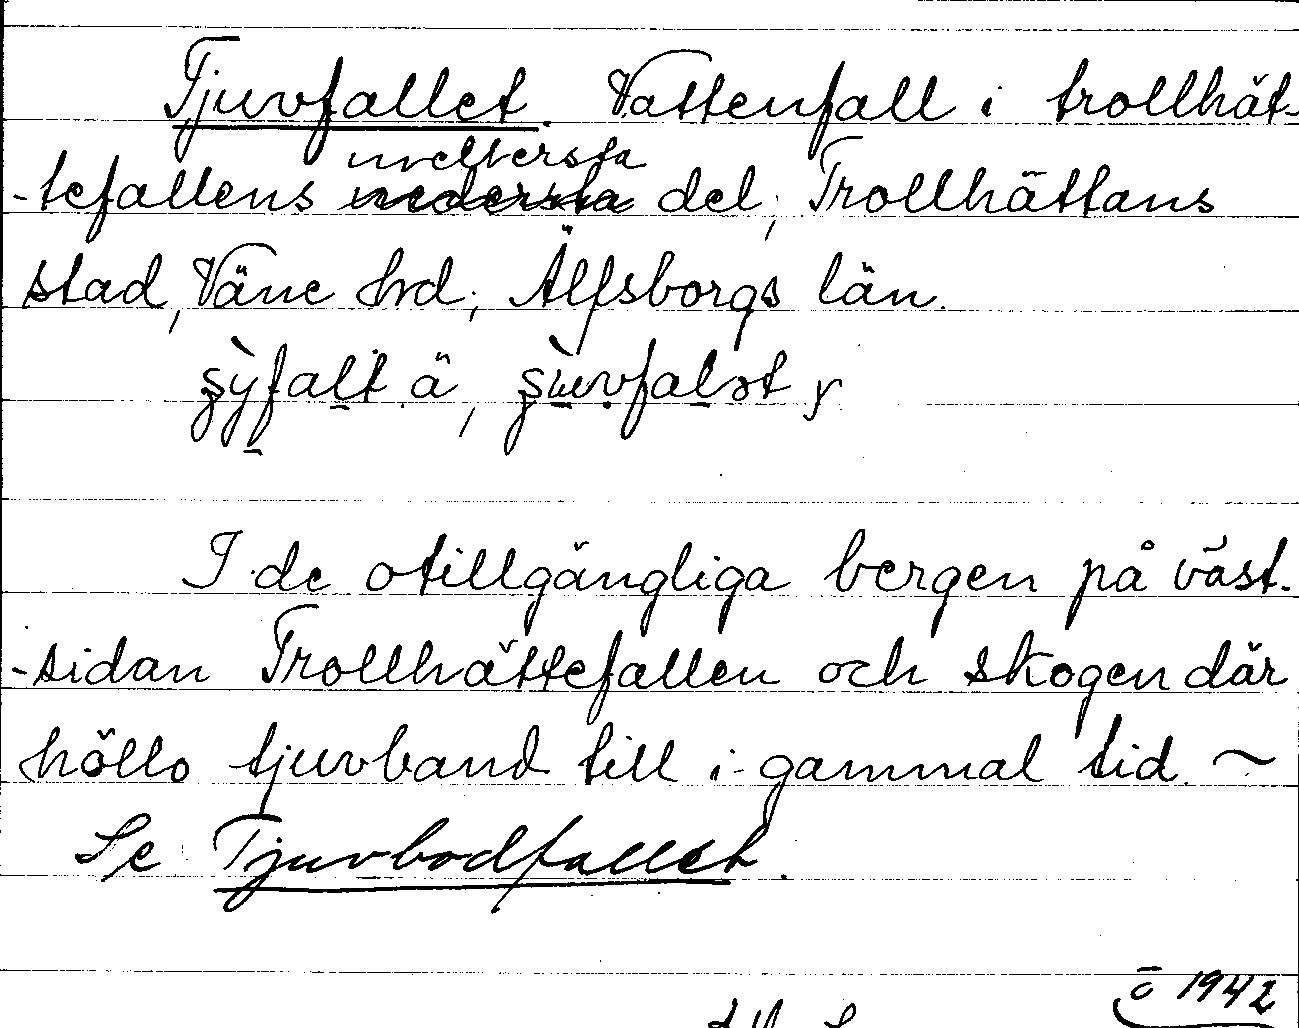 Tjuvfallet. Vattenfall i trollhät-
mellersta
-tefallens nedersta del, Trollhättans
stad, Väne hrd, Älfsborgs län.
ä, y
I de otillgängliga bergen på väst-
-sidan Trollhättefallen och skogen där
höllo tjuvband till i gammal tid. ~
Se Tjuvbodfallet.
ö 1942